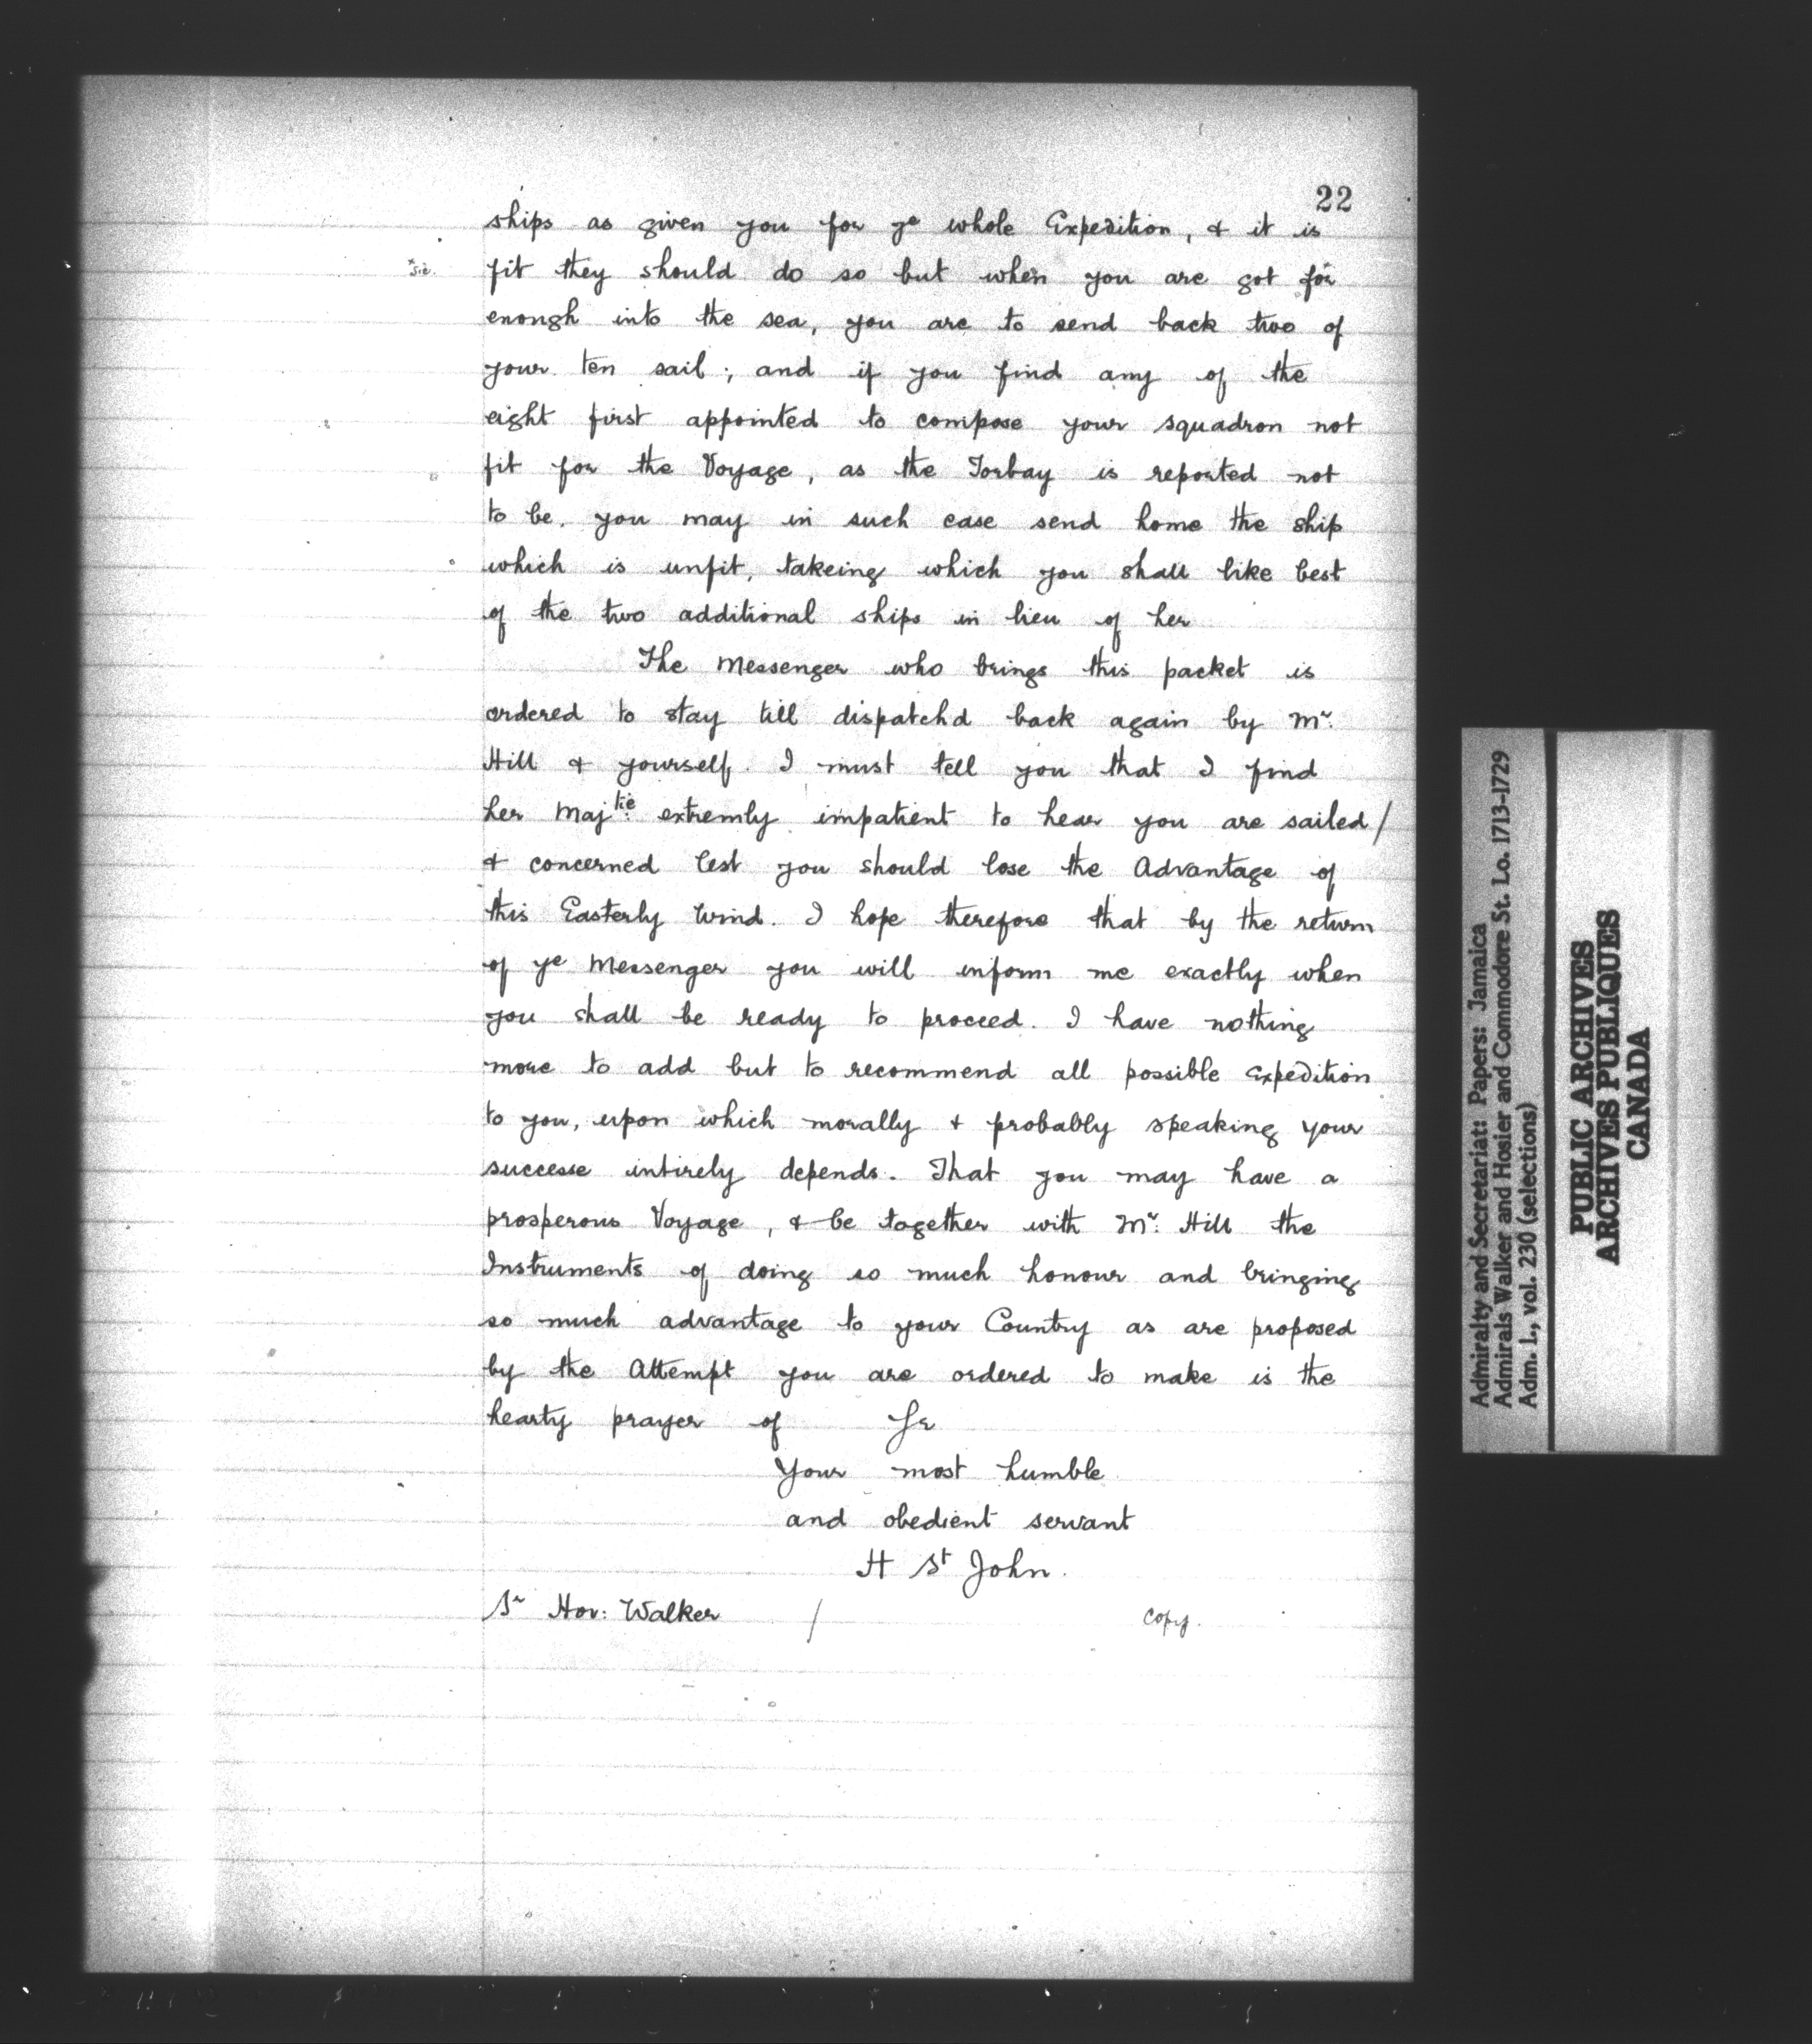 22
ships as given you for ye whole Expedition, & it is
x sic. fit they should do so but when you are got for x
enough into the sea, you are to send back two of
your ten sail; and if you find any of the
eight first appointed to compose your squadron not
fit for the Voyage, as the Torbay is reported not
to be. you may in such case send home the ship
which is unfit, takeing which you shall like best
of the two additional ships in lieu of her
The Messenger who brings this packet is
ordered to stay till dispatchd back again by Mr.
Hill & yourself. I must tell you that I find
her Majtie: extremly impatient to hear you are sailed/
& concerned lest you should lose the Advantage of
this Easterly Wind. I hope therefore that by the return
of ye Messenger you will inform me exactly when
you shall be ready to proceed. I have nothing
more to add but to recommend all possible Expedition
to you, upon which morally & probably speaking your
successe intirely depends. That you may have a
prosperous Voyage, & be together with Mr: Hill the
Instruments of doing so much honour and bringing
so much advantage to your Country as are proposed
by the Attempt you are ordered to make is the
hearty prayer of Sr
Your most humble
and obedient servant
H St John.
Sr Hov: Walker /
Copy.
Admiralty and Secretariat: Papers: Jamaica
Admirals Walker and Hosier and Commodore St. Lo. 1713-1729
Adm. 1., vol. 230 (selections)
PUBLIC ARCHIVES
ARCHIVES PUBLIQUES
CANADA